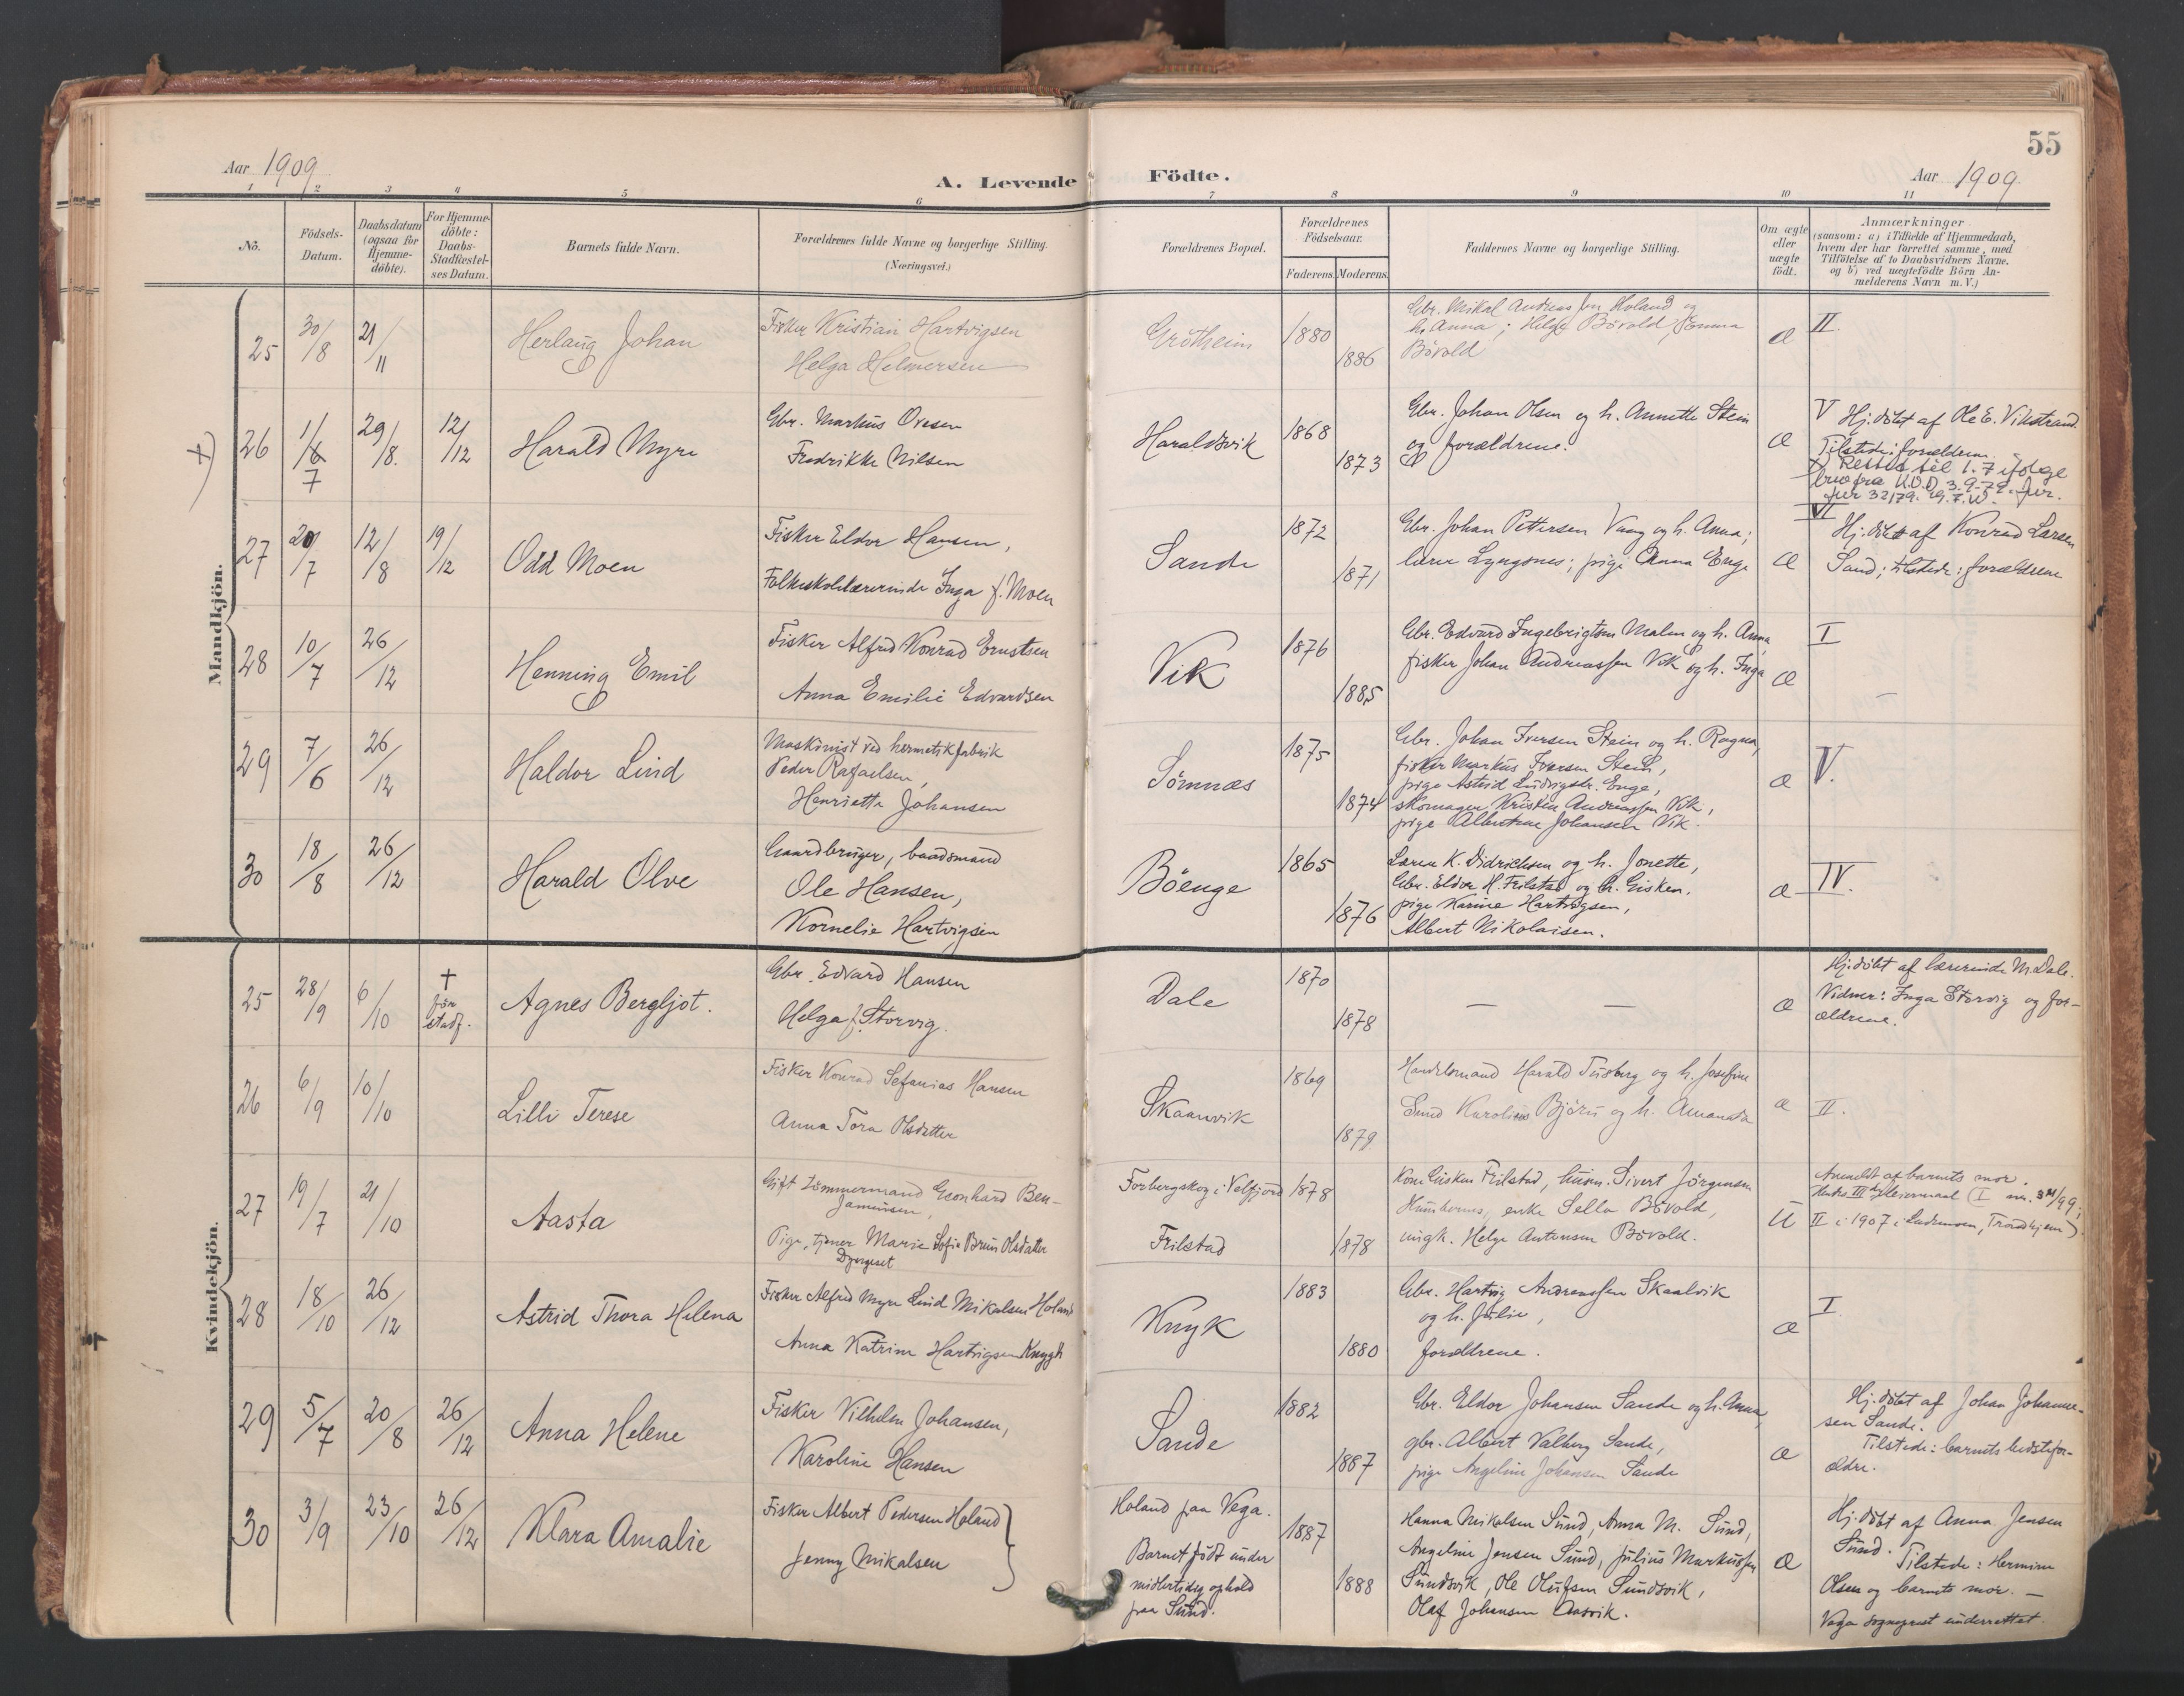 55
Aar 1909
A. Levende Födte.
Aar 1909
1 2 3 4 5 6 7 8 9 10 11
Nö.
Födsels-
Datum.
Daabsdatum
(ogsaa for
Hjemme-
döbte).
For Hjemme-
döbte:
Daabs-
Stadfæstel-
ses Datum.
Barnets fulde Navn.
Forældrenes fulde Navne og borgerlige Stilling.
(Næringsvei.)
Forældrenes Bopæl.
Forældrenes
Födselsaar.
Faderens. Moderens.
Faddernes Navne og borgerlige Stilling.
Om ægte
eller
uægte
födt.
Anmærkninger
(saasom: a) i Tilfælde af Hjemmedaab,
hvem der har forrettet samme, med
Tilföielse af to Daabsvidners Navne.
og b) ved uægtefödte Börn An-
melderens Navn m. V.)
Mandkjön.
25 30/8 21/11
Herlaug Johan
Fisker Kristian Hartvigsen
Helga Helmersen
Grötheim
1880
1886
h. Anna; Helge Bövold, Emma
Bövold
Æ
II.
+)
26 1/6 29/8. 12/12
7
Harald Myre
Gbr. Markus Ovesen
Fredrikke Nilsen
Haraldsvik
1868
1873
Gbr. Johan Olsen og h. Annette Stein
og forældrene.
Æ
V Hj. döbt af Ole E. Vikstrand.
Tilstede: forældrene.
Rettet til 1.7 ifølge
27 20/7 12/8 19/12
Odd Moen
Fisker Eldor Hansen,
Folkeskolelærerinde Inga f. Moen
Sande
1872
1871
Gbr. Johan Pettersen Vang og h. Anna;
lærer Lyngsnes; pige Anna Enge
Æ
VI
Hj. döbt af Konrad Larsen
Sand; tilstede: forældrene
28 10/7 26/12
Henning Emil
Fisker Alfred Konrad Ernstsen
Anna Emilie Edvardsen
Vik
1876
1885
Gbr. Edvard Ingebrigtsen Malm og h. Anna,
fisker Johan Andreassen Vik og h. Inga
Æ
I
29 7/6 26/12
Haldor Lind
Maskinist ved hermetikfabrik
Peder Rafaelsen,
Henriette Johansen
Sömnæs
1875
1874
Gbr. Johan Iversen Stein og h. Ragna,
fisker Markus Iversen Stein,
pige Astrid Ludvigsdr. Enge,
skomager Kristen Andreassen Vik,
pige Albertine Johansen Vik.
Æ
V.
30 18/8 26/12
Harald Olve
Gaardbruger, baadsmand
Ole Hansen,
Kornelie Hartvigsen
Böenge
1865
1876
Lærer K. Didriksen og h. Jonette,
Gbr. Eldor H. Frilstad og h. Gisken,
pige Karine Hartvigsen,
Albert Nikolaisen.
Æ
IV.
Kvindekjön.
25 28/9 6/10 +
för
stadf.
Agnes Bergljot.
Gbr. Edvard Hansen
Helga f. Storvig.
Dale
1870
1878
— —
Æ
Hj. döbt af lærerinde M. Dale.
Vidner: Inga Storvig og for-
ældrene.
26 6/9 10/10
Lilli Terese
Fisker Konrad Sefanias Hansen
Anna Tora Olsdatter
Skaanvik
1869
1879
Handelsmand Harald Tusberg og h. Josefine
Sund Karolius Björu og h. Amanda
Æ
II.
27 19/7 21/10
Aasta
Gift tömmermand Leonhard Ben-
jaminsen,
Pige, tjener Marie Sofie Bruun Olsdatter
Dyrgeset
Forbergskog i Velfjord
Frilstad
1878
1878
Kone Gisken Frilstad, husm. Sivert Jörgensen
Humbornes, enke Sella Bövold,
ungk. Helge Antonsen Bövold.
U
Anmeldt af barnets mor.
II i 1907 i Ladmoen, Trondhjem).
28 18/10 26/12
Astrid Thora Helena
Fisker Alfred Myre Lind Mikalsen Holand
Anna Katrine Hartvigsen Knygh
Knyk
1883
1880
Gbr. Hartvig Andreassen Skaalvik
og h. Julie,
forældrene.
Æ
I.
29 5/7 20/8 26/12
Anna Helene
Fisker Vilhelm Johansen,
Karoline Hansen
Sande
1882
1887
Gbr. Eldor Johansen Sande og h. Anna,
gbr. Albert Valberg Sande,
pige Angeline Johansen Sande
Æ
Hj. döbt af Johan Johanne-
sen Sande.
Tilstede: barnets bedstefor-
ældre.
30 3/9 23/10 26/12
Klara Amalie
Fisker Albert Pedersen Holand
Jenny Mikalsen
Holand paa Vega.
Barnet födt under
midlertidig ophold
paa Sund.
1887
1888
Hanna Mikalsen Sund, Anna M. Sund,
Angeline Jensen Sund, Julius Markussen
Sundsvik, Ole Olufsen Sundsvik,
Olaf Johansen Aasvik.
Æ
Hj. döbt af Anna Jensen
Sund. Tilstede: Hermine
Olsen og barnets mor. —
Vega sogneprest underrettet.